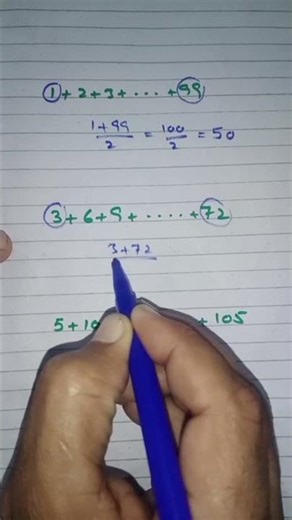 1 + 2 + 3 + ..... + 99
1+99/2 = 100/2 = 50
3 + 6 + 9 + ...... + 72
3+72
5 + 10 + 105